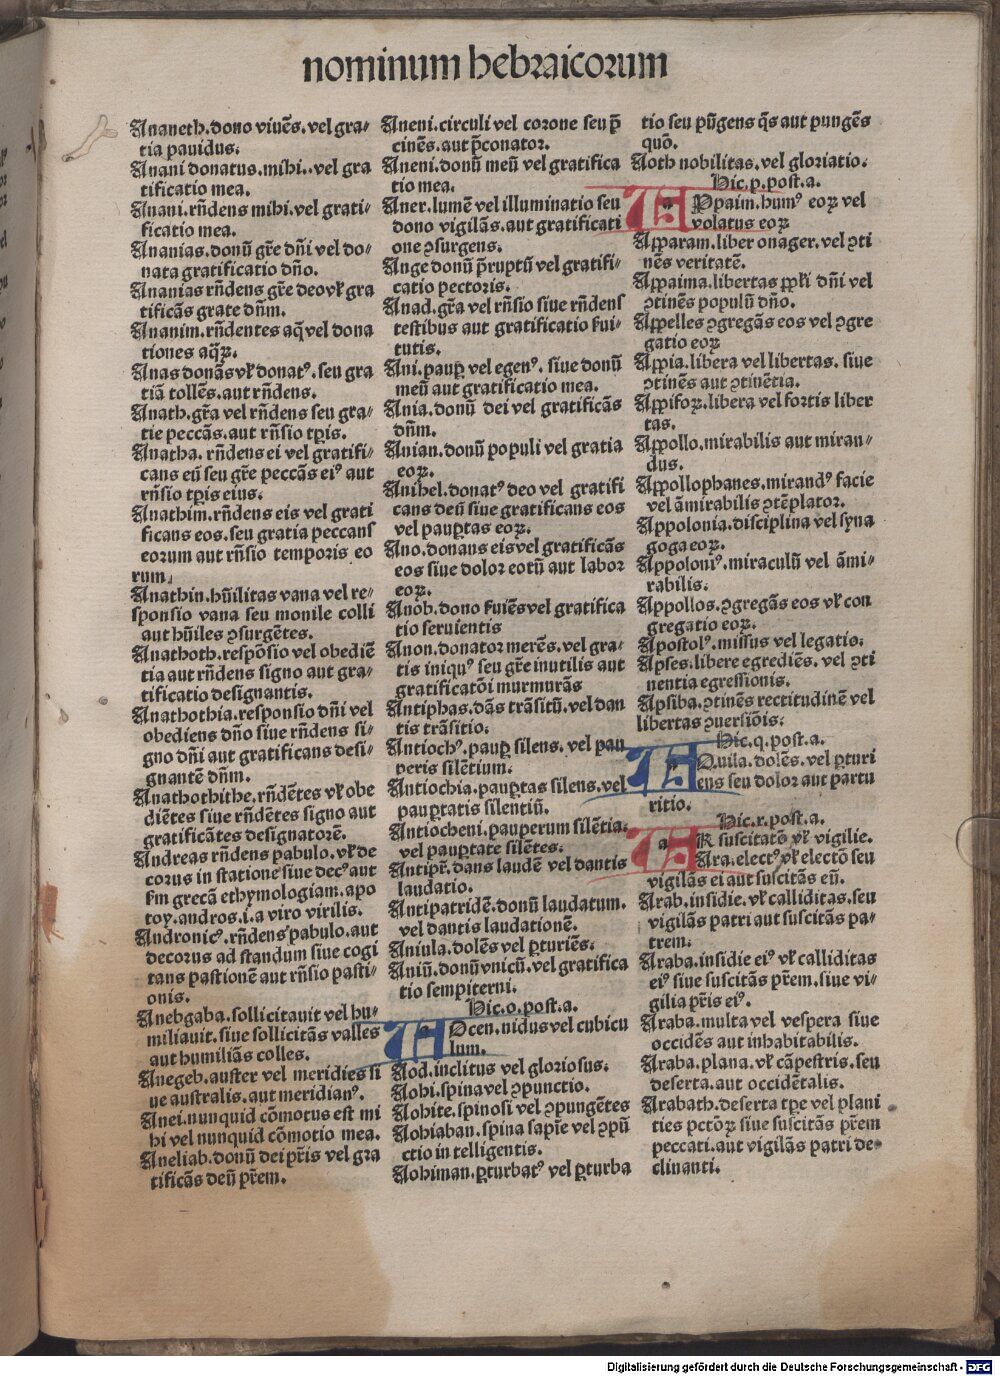 nominum hebraicorum
Ananeth.dono viuēs.vel gra-
tia pauidus.
Anani donatus.mihi..vel gra
tificatio mea.
Anani.rñdens mihi.vel grati-
ficatio mea.
Ananias.donū gr̄e dñi vel do-
nata gratificatio dño.
Ananias rñdens gr̄e deo vł gra
tificās grate dñm.
Ananim.rñdentes aq̄ vel dona
tiones aq̄ꝝ.
Anas donās vł donatꝰ.seu gra
tiā tollēs.aut rñdens.
Anath.gr̄a vel rñdens seu gra-
tie peccās.aut rñsio tp̄is.
Anatha.rñdens ei vel gratifi-
cans eū seu gr̄e peccās eiꝰ aut
rñsio tp̄is eius.
Anathim.rñdens eis vel grati
ficans eos.seu gratia peccans
eorum aut rñsio temporis eo
rum.
Anathin.hūilitas vana vel re-
sponsio vana seu monile colli
aut hūiles ꝯsurgētes.
Anathoth.respōsio vel obediē
tia aut rñdens signo aut gra-
tificatio designantis.
Anathothia.responsio dñi vel
obediens dño siue rñdens si-
gno dñi aut gratificans desi-
gnantē dñm.
Anathothithe.rñdētes vł obe
diētes siue rñdētes signo aut
gratificātes designatorē.
Andreas rñdens pabulo.vł de
corus in statione siue decꝰ aut
fm grecā ethymologiam.apo
toy.andros.i.a viro virilis.
Andronicꝰ.rñdens pabulo.aut
decorus ad standum siue cogi
tans pastionē aut rñsio pasti-
onis.
Anebgaba.sollicitauit vel hu-
miliauit.siue sollicitās valles
aut humiliās colles.
Anegeb.auster vel meridies si
ue australis.aut meridianꝰ.
Anei.nunquid cōmotus est mi
hi vel nunquid cōmotio mea.
Aneliab.donū dei pr̄is vel gra
tificās deū pr̄em.
Aneni.circuli vel corone seu p̄
cinēs.aut p̄conator.
Aneni.donū meū vel gratifica
tio mea.
Aner.lumē vel illuminatio seu
dono vigilās.aut gratificati
one ꝯsurgens.
Ange donū p̄ruptū vel gratifi-
catio pectoris.
Anad.gr̄a vel rñsio siue rñdens
testibus aut gratificatio fui-
tutis.
Ani.paup̱ vel egenꝰ. siue donū
meū aut gratificatio mea.
Ania.donū dei vel gratificās
dñm.
Anian.donū populi vel gratia
eoꝝ.
Anihel.donatꝰ deo vel gratifi
cans deū siue gratificans eos
vel paup̱tas eoꝝ.
Ano.donans eis vel gratificās
eos siue dolor eorū aut labor
eoꝝ.
Anob.dono fuiēs vel gratifica
tio seruientis
Anon.donator merēs.vel gra-
tis iniquꝰ seu gr̄e inutilis aut
gratificatōi murmurās
Antiphas.dās trāsitū.vel dan
tis trāsitio.
Antiochꝰ.paup̱ silens. vel pau
peris silētium.
Antiochia.paup̱tas silens.vel
paup̱tatis silentiū.
Antiocheni.pauperum silētia.
vel paup̱tate silētes.
Antipr̄.dans laudē vel dantis
laudatio.
Antipatridē.donū laudatum.
vel dantis laudationē.
Aniula.dolēs vel p̱turiēs.
Aniū.donū vnicū.vel gratifica
tio sempiterni.
Hic.o.post.a.
AOcen.nidus vel cubicu
lum.
Aod.inclitus vel gloriosus.
Aohi.spina vel ꝯpunctio.
Aohite.spinosi vel ꝯpungētes
Aohiaban.spina sapīe vel ꝯpū
ctio in telligentis.
Aohiman.p̱turbatꝰ vel p̱turba
tio seu pūgens q̄s aut pungēs
quō.
Aoth nobilitas.vel gloriatio.
Hic.p.post.a.
APpaim.humꝰ eoꝝ vel
volatus eoꝝ
Apparam.liber onager.vel ꝯti
nēs veritatē.
Appaima.libertas ppłi dñi vel
ꝯtinēs populū dño.
Appelles ꝯgregās eos vel ꝯgre
gatio eoꝝ
Appia.libera vel libertas. siue
ꝯtinēs aut ꝯtinētia.
Appifoꝝ.libera vel fortis liber
tas.
Appollo.mirabilis aut miran-
dus.
Appollophanes.mirandꝰ facie
vel āmirabilis ꝯtēplator.
Appolonia.disciplina vel syna
goga eoꝝ.
Appoloniꝰ.miraculū vel āmi-
rabilis.
Appollos.ꝯgregās eos vł con
gregatio eoꝝ.
Apostolꝰ.missus vel legatio.
Apses.libere egrediēs. vel ꝯti
nentia egressionis.
Apsiba.ꝯtinēs rectitudinē vel
libertas ꝯuersiōis.
Hic.q.post.a.
AQuila.dolēs.vel p̱turi
ens seu dolor aut partu
ritio.
Hic.r.post.a.
AR suscitatō vł vigilie.
Ara.electꝰ vł electō seu
vigilās ei aut suscitās eū.
Arab.insidie.vł calliditas.seu
vigilās patri aut suscitās pa-
trem.
Araba.insidie eiꝰ vł calliditas
eiꝰ siue suscitās pr̄em.siue vi-
gilia pr̄is eiꝰ.
Araba.multa vel vespera siue
occidēs aut inhabitabilis.
Araba.plana.vł cāpestris.seu
deserta.aut occidētalis.
Arabath.deserta tp̄e vel plani
ties pctōꝝ siue suscitās pr̄em
peccati.aut vigilās patri de-
clinanti.
Digitalisierung gefördert durch die Deutsche Forschungsgemeinschaft - DFG